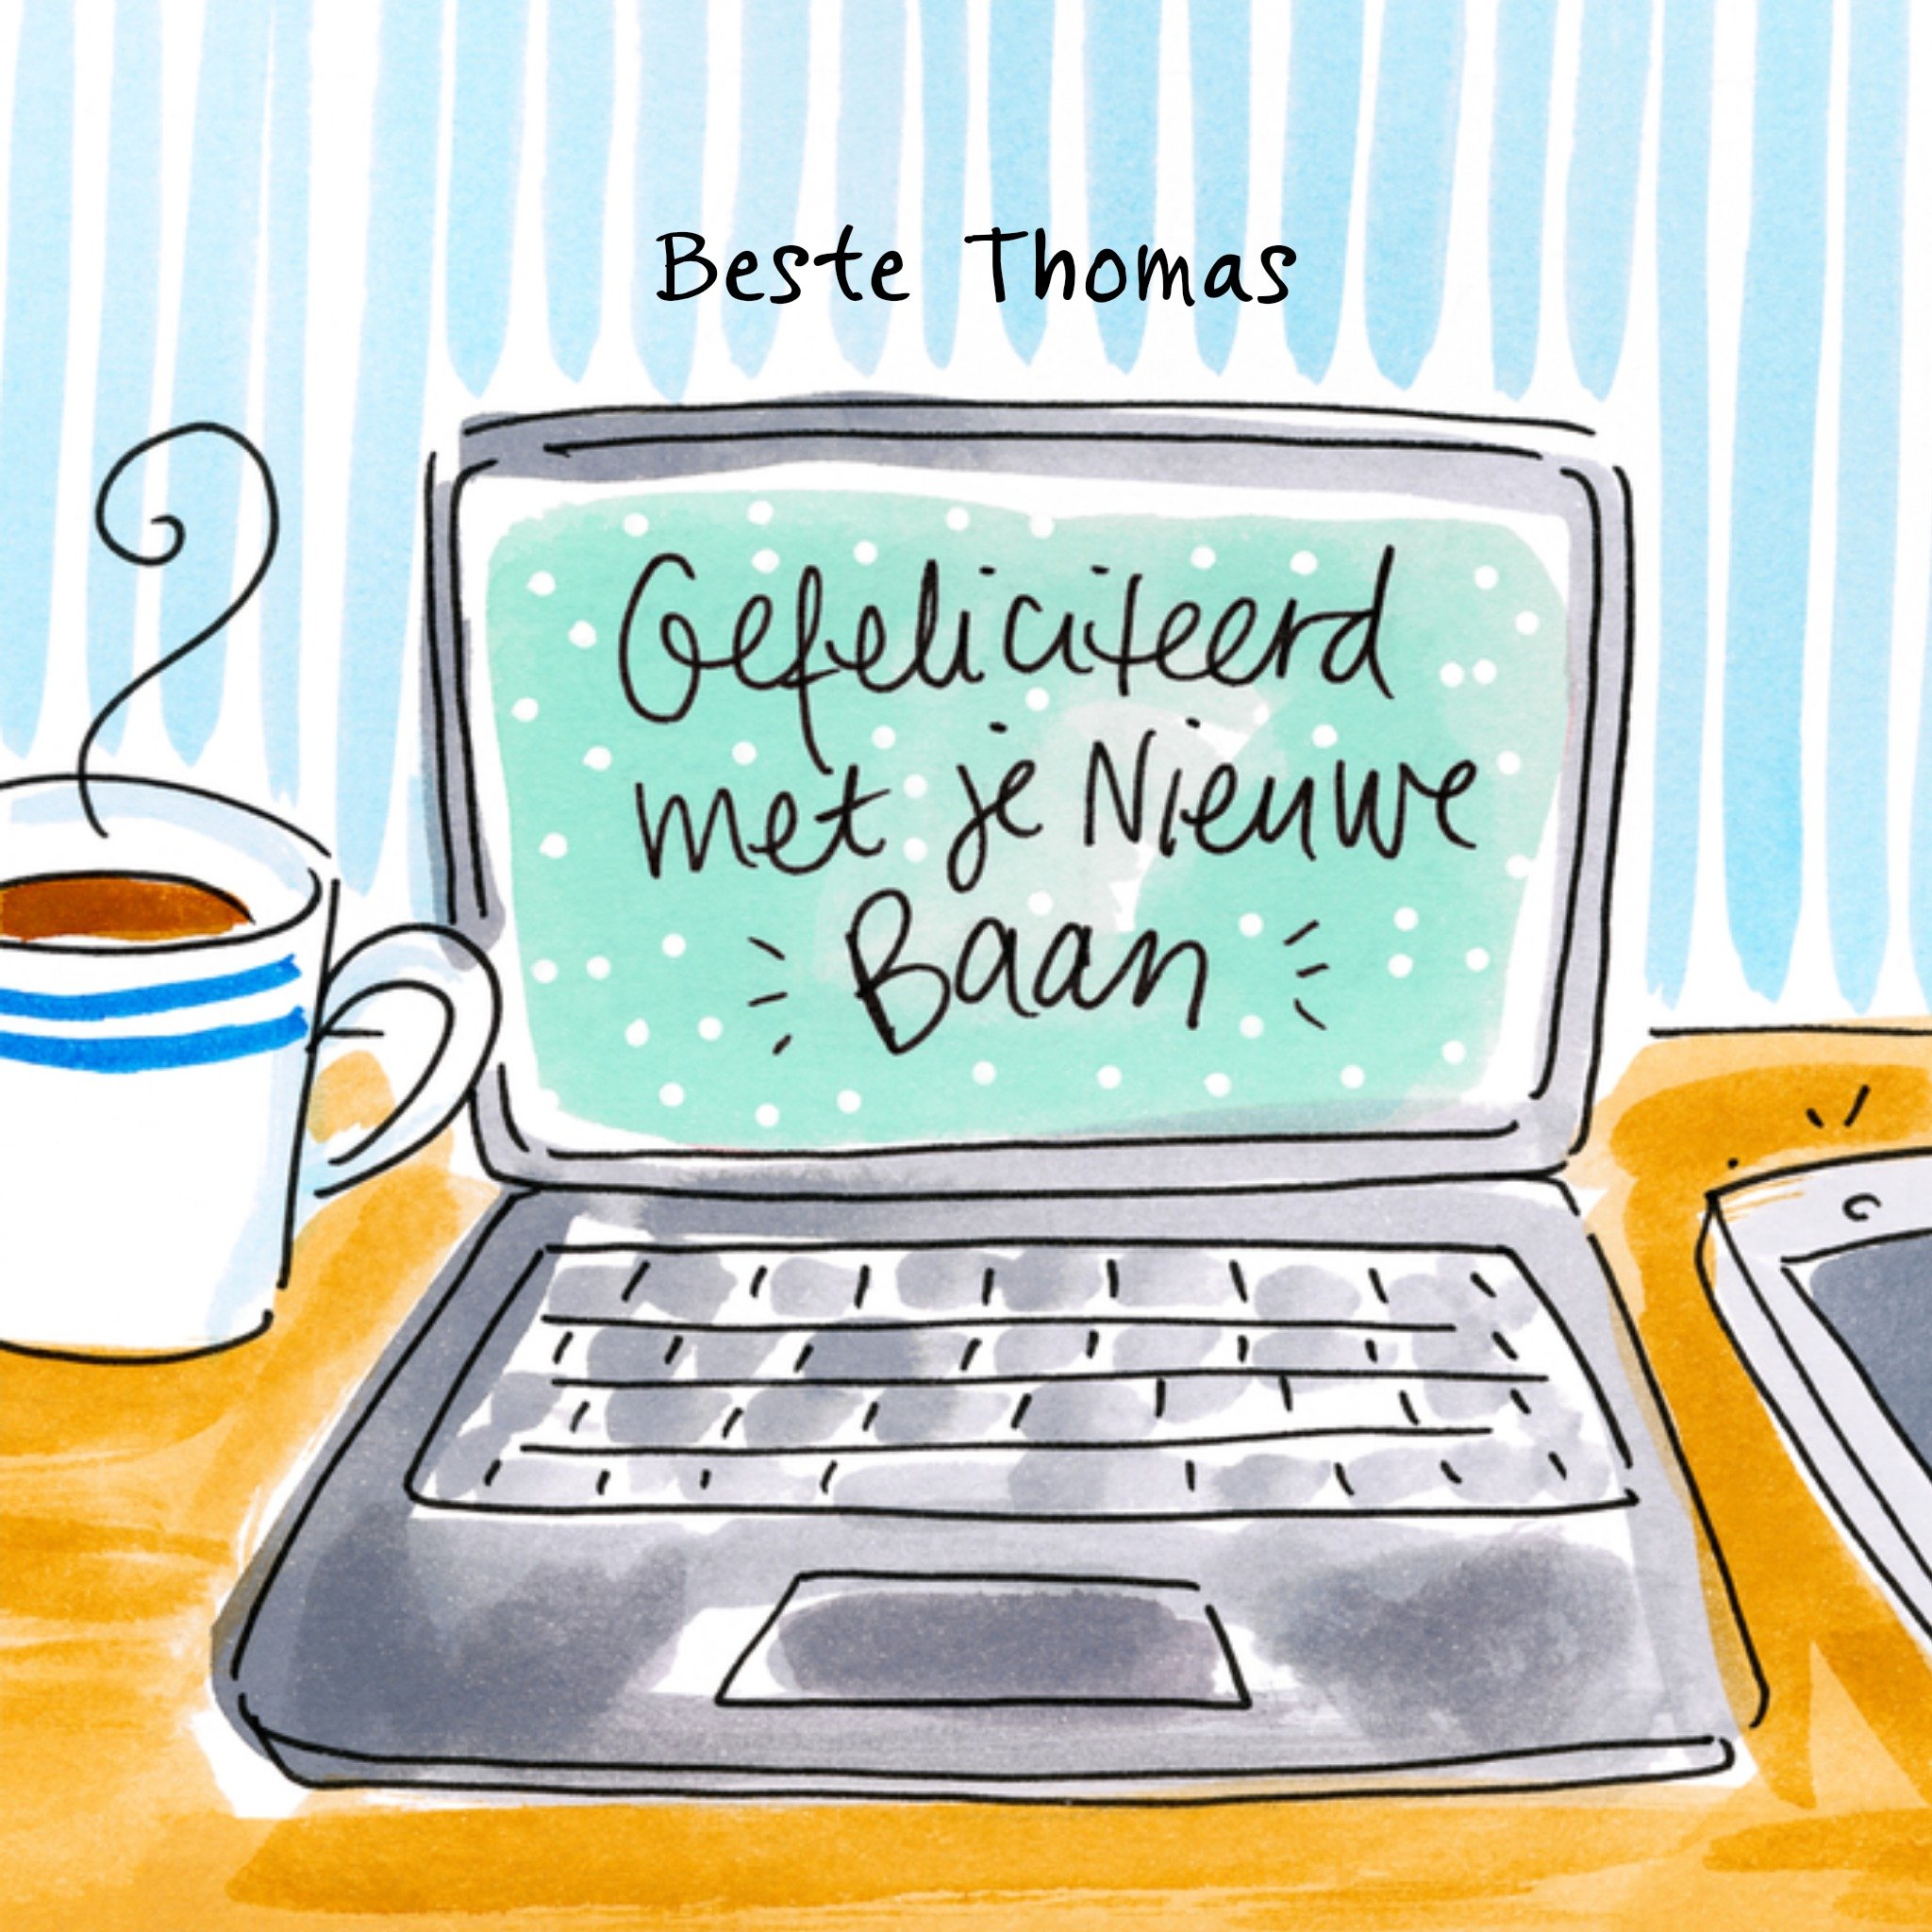 Beste Thomas
Gefeliciteerd
met je Nieuwe
Baan